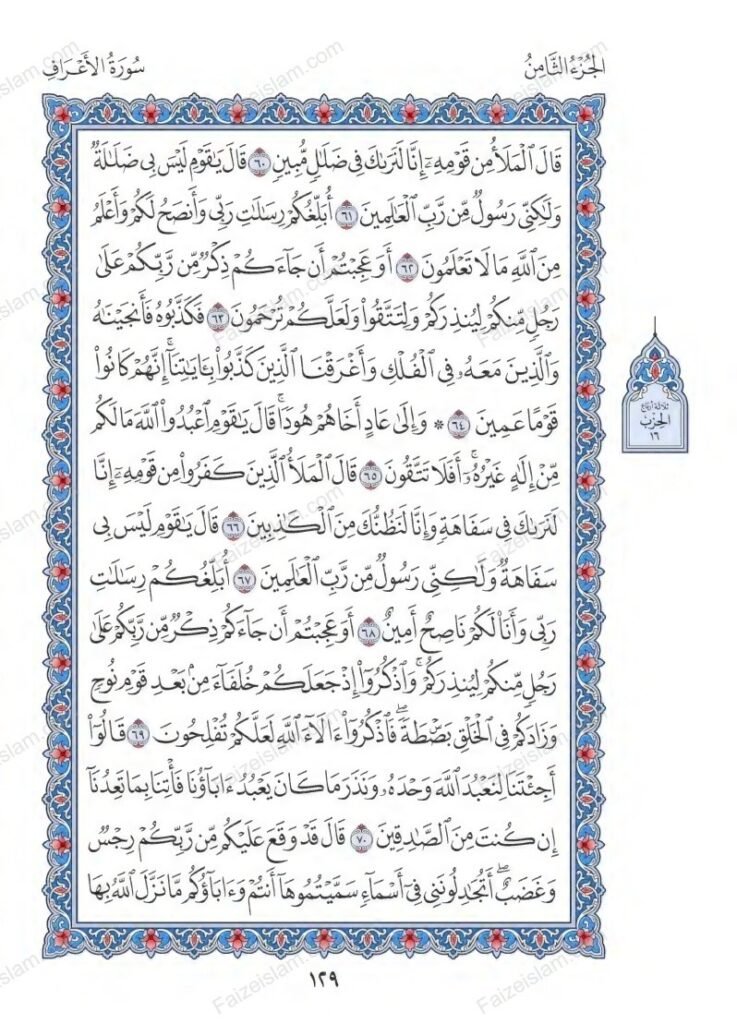 الجُزْءُ الثَّامِنُ
سُورَةُ الأَعْرَافِ
قَالَ ٱلْمَلَأُ مِن قَوْمِهِۦٓ إِنَّا لَنَرَىٰكَ فِى ضَلَٰلٍ مُّبِينٍ ٦٠ قَالَ يَٰقَوْمِ لَيْسَ بِى ضَلَٰلَةٌ
وَلَٰكِنِّى رَسُولٌ مِّن رَّبِّ ٱلْعَٰلَمِينَ ٦١ أُبَلِّغُكُمْ رِسَٰلَٰتِ رَبِّى وَأَنصَحُ لَكُمْ وَأَعْلَمُ
مِنَ ٱللَّهِ مَا لَا تَعْلَمُونَ ٦٢ أَوَعَجِبْتُمْ أَن جَآءَكُمْ ذِكْرٌ مِّن رَّبِّكُمْ عَلَىٰ
رَجُلٍ مِّنكُمْ لِيُنذِرَكُمْ وَلِتَتَّقُوا۟ وَلَعَلَّكُمْ تُرْحَمُونَ ٦٣ فَكَذَّبُوهُ فَأَنجَيْنَٰهُ
وَٱلَّذِينَ مَعَهُۥ فِى ٱلْفُلْكِ وَأَغْرَقْنَا ٱلَّذِينَ كَذَّبُوا۟ بِـَٔايَٰتِنَآ ۚ إِنَّهُمْ كَانُوا۟
قَوْمًا عَمِينَ ٦٤ * وَإِلَىٰ عَادٍ أَخَاهُمْ هُودًا ۗ قَالَ يَٰقَوْمِ ٱعْبُدُوا۟ ٱللَّهَ مَا لَكُم
مِّنْ إِلَٰهٍ غَيْرُهُۥٓ ۚ أَفَلَا تَتَّقُونَ ٦٥ قَالَ ٱلْمَلَأُ ٱلَّذِينَ كَفَرُوا۟ مِن قَوْمِهِۦٓ إِنَّا
لَنَرَىٰكَ فِى سَفَاهَةٍ وَإِنَّا لَنَظُنُّكَ مِنَ ٱلْكَٰذِبِينَ ٦٦ قَالَ يَٰقَوْمِ لَيْسَ بِى
سَفَاهَةٌ وَلَٰكِنِّى رَسُولٌ مِّن رَّبِّ ٱلْعَٰلَمِينَ ٦٧ أُبَلِّغُكُمْ رِسَٰلَٰتِ
رَبِّى وَأَنَا۠ لَكُمْ نَاصِحٌ أَمِينٌ ٦٨ أَوَعَجِبْتُمْ أَن جَآءَكُمْ ذِكْرٌ مِّن رَّبِّكُمْ عَلَىٰ
رَجُلٍ مِّنكُمْ لِيُنذِرَكُمْ ۚ وَٱذْكُرُوٓا۟ إِذْ جَعَلَكُمْ خُلَفَآءَ مِنۢ بَعْدِ قَوْمِ نُوحٍ
وَزَادَكُمْ فِى ٱلْخَلْقِ بَصْۜطَةً ۖ فَٱذْكُرُوٓا۟ ءَالَآءَ ٱللَّهِ لَعَلَّكُمْ تُفْلِحُونَ ٦٩ قَالُوٓا۟
أَجِئْتَنَا لِنَعْبُدَ ٱللَّهَ وَحْدَهُۥ وَنَذَرَ مَا كَانَ يَعْبُدُ ءَابَآؤُنَا ۖ فَأْتِنَا بِمَا تَعِدُنَآ
إِن كُنتَ مِنَ ٱلصَّٰدِقِينَ ٧٠ قَالَ قَدْ وَقَعَ عَلَيْكُم مِّن رَّبِّكُمْ رِجْسٌ
وَغَضَبٌ ۖ أَتُجَٰدِلُونَنِى فِىٓ أَسْمَآءٍ سَمَّيْتُمُوهَآ أَنتُمْ وَءَابَآؤُكُم مَّا نَزَّلَ ٱللَّهُ بِهَا
ثلاثة أرباع
الحزب
١٦
١٢٩
Faizeislam.com